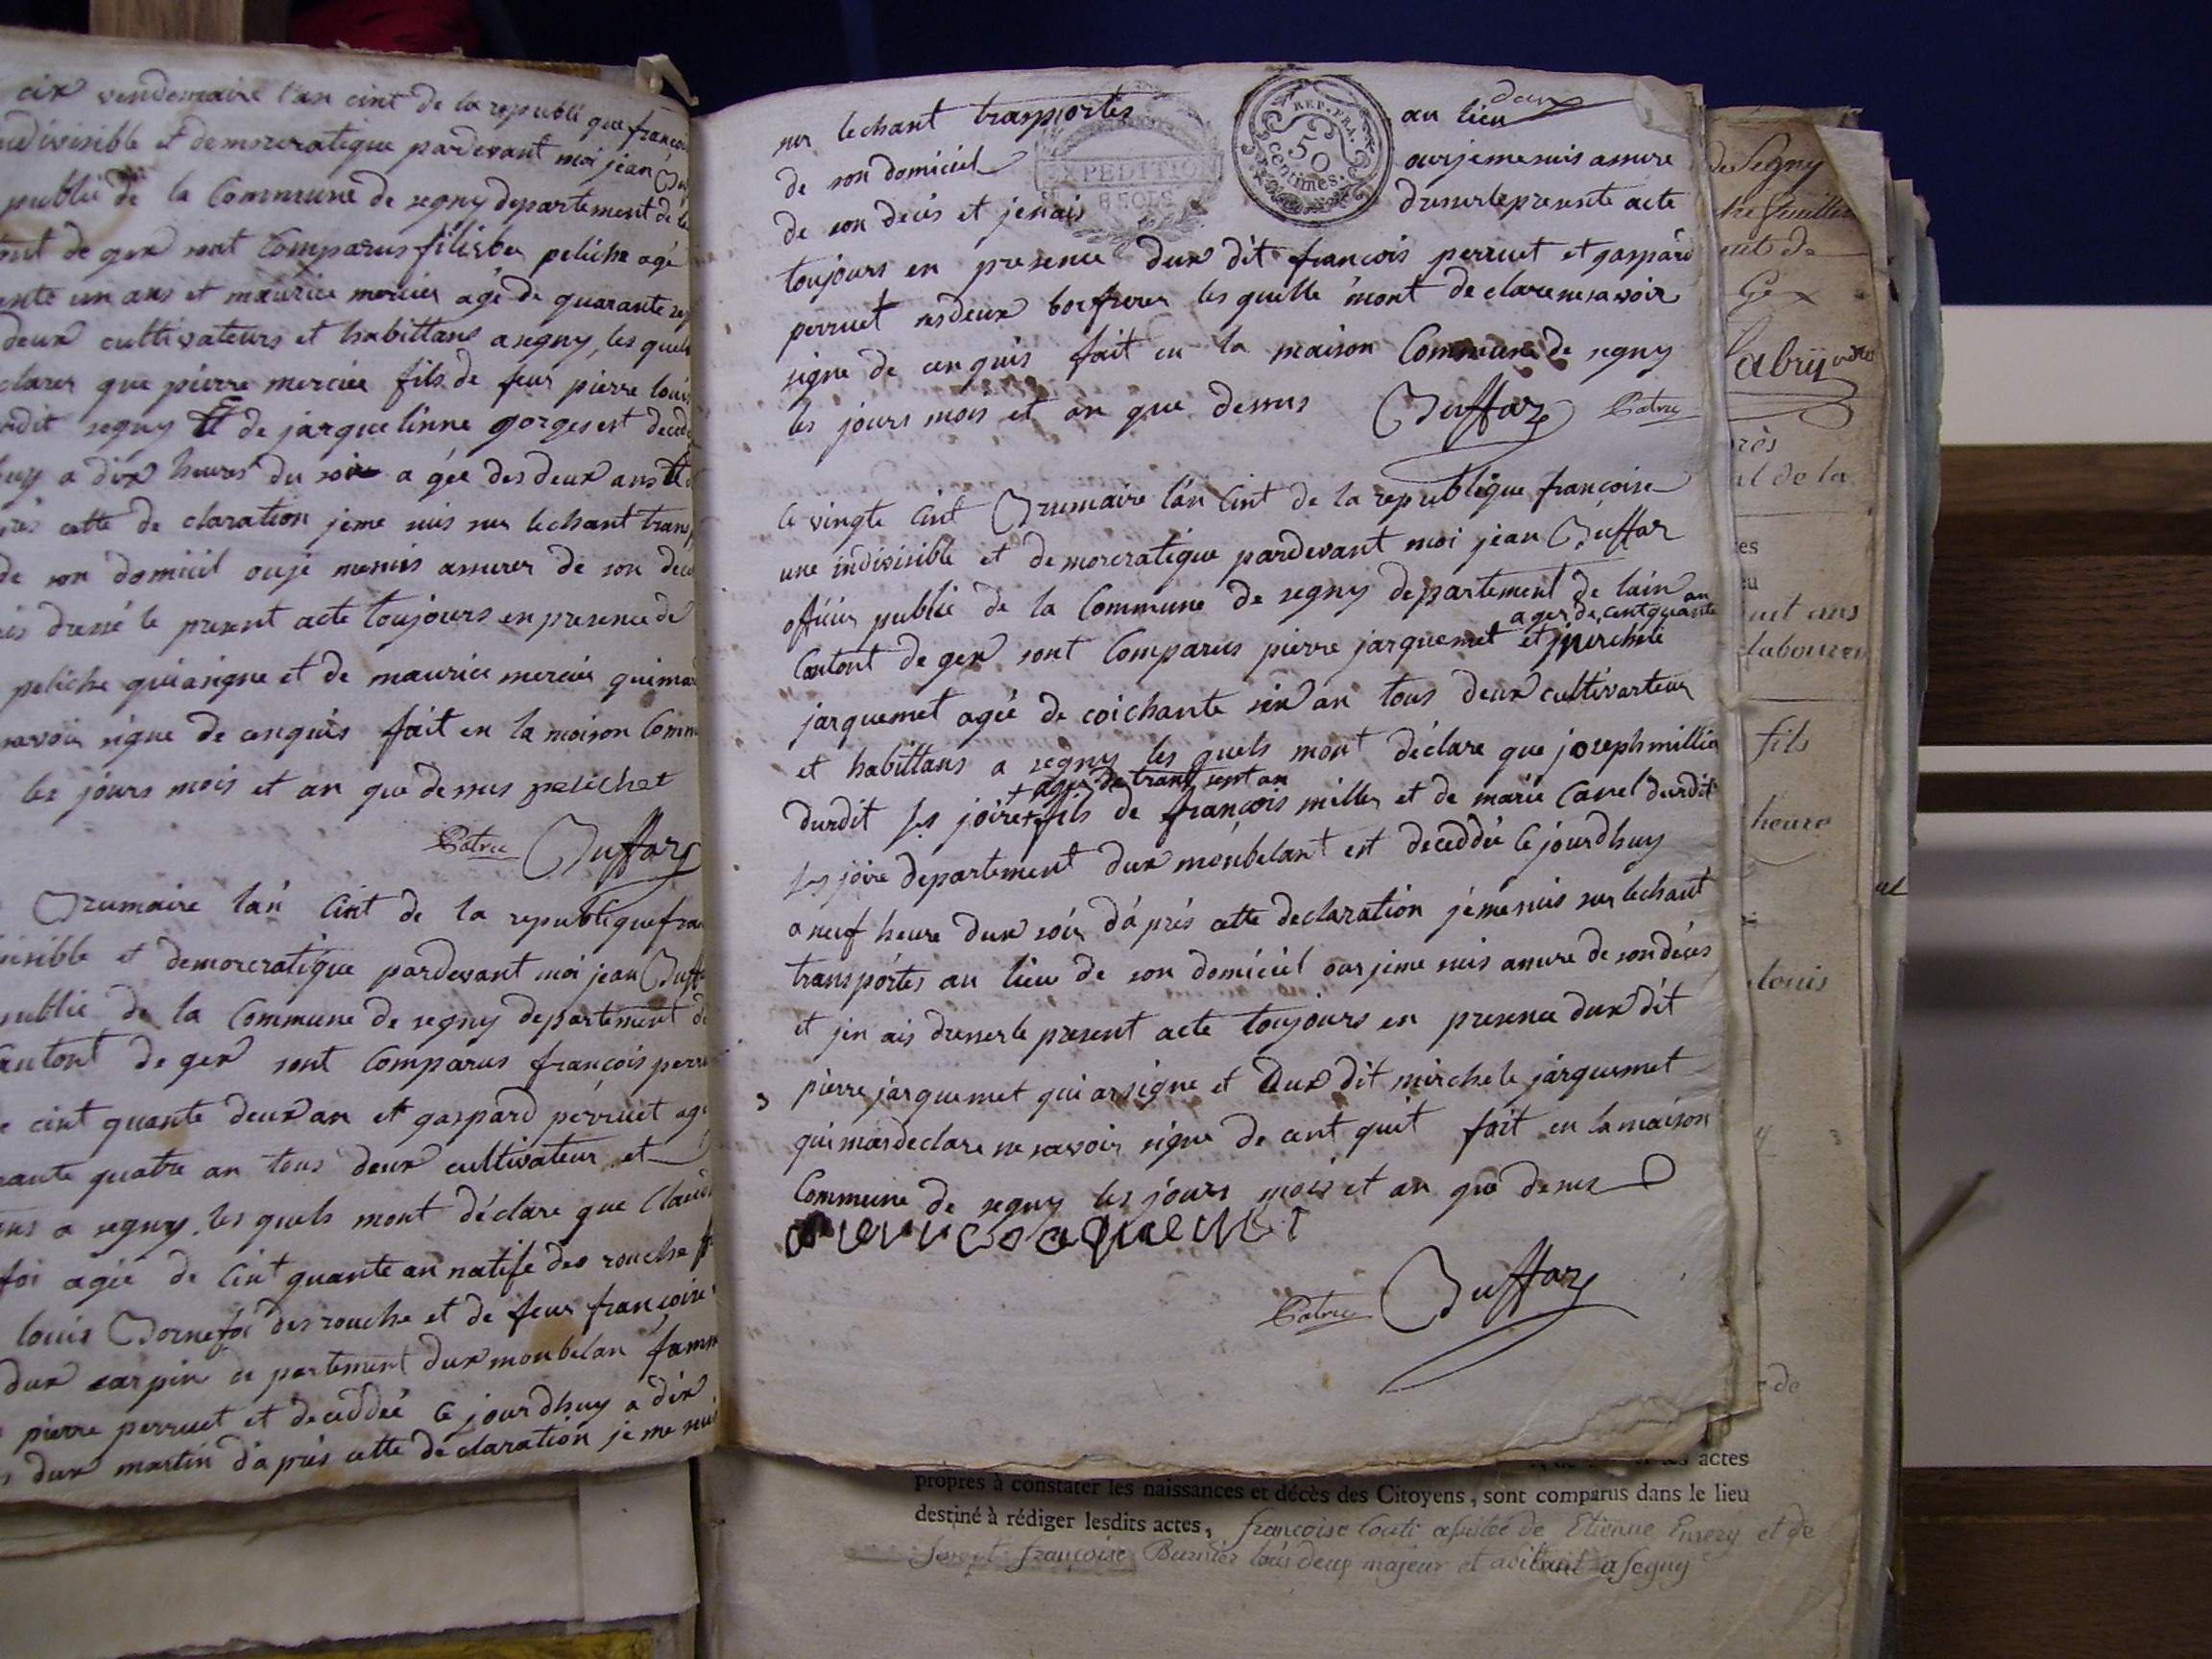 six vendemaire l'an cint de la republi que francoi
indivisible et demorcratique pardevant moi jean
publie de la Commune de segny departement de
de gex sont Comparus filisber peliche agé
ente un ans et maurice mercier agé de quarante
deux cultivateurs et habittans a segny, les quels
clarer que pierre mercier fils de feus pierre louis
dudit segny et de jarquelinne gorges est deced
huy a dix heures du soir a gée des deux ans
près cette de claration jeme suis sur lechant trans
de son domiciel ouje mesuis assurer de son dec
is dressé le present acte toujours en presence de
peliche quiasigne et de maurice mercier quima
savoir signe de cenquis fait en la moison Comm
les jours mois et an que dessus pelichet
Patru Buffaz
Brumaire l'an Cint de la republique fra
isible et demorcratique pardevant moi jean Buff
publie de la Commune de segny departement d
Cantont de gex sont Comparus françois perru
cint quante deux an et gaspard perruet agé
rante quatre an tous deux cultivateur et
a segny les quels mont déclare que Claud
foi agée de Cint quante an natife des rouche
louis Bornefoi des rouche et de feus françoise
dux sarpin de partement dux monbelan famm
pierre perruet et deceddée Ce jourdhuy a dix
dux martin d'a près cette de claration je me suis
sur lechant trasportés EXPEDITION 8 SOLS REP. FRA. 50 centimes. au lieu dans
de son domiciel ousjemesuis assure
de son decés et jenais dresserlepresente acte
toujours en presence dux dit francois perruet et gaspard
perruet sesdeux borfrerer les quelle m'ont declarenesavoir
signe de cenquis fait en la maison Commune de segny
les jours mois et an que dessus Buffaz Patru
Ce vingte Cint Brumaire l'an Cint de la republique francoise
une indivisible et demorcratique pardevant moi jean Buffaz
officier publie de la Commune de segny departement de lain
Cantont de gex sont Comparus pierre jarquemet ager de cintquante an et mirchele
jarquemet agée de coichante six an tous deux cultivarteur
et habittans a segny les quels mont déclare que joseph millier
durdit st joire + ager de trant sent an fils de françois miller et de marie Cavel durdit
st joire departement dux monbelant est deceddée Ce jourdhuy
a neuf heure dux soir d'a près cette declaration jemesuis sur lechant
transportés au lieu de son domiciel ous jeme suis assure de sondecés
et jen ais dresserle present acte toujours en presence dux dit
pierre jarquemet qui arsigne et dux dit mirchele jarquemet
quimasdeclare ne savoir signe de cent quit fait en la maison
Commune de segny les jours mois et an que desus
Patru Buffaz
de Segny
Gex
fils
heure
louis
actes
propres à constater les naissances et décès des Citoyens, sont comparus dans le lieu
destiné à rédiger lesdits actes, francoise Couti assistée de Etienne Emery et de
françoise Burnier tous deux majeur et abitant a Segny